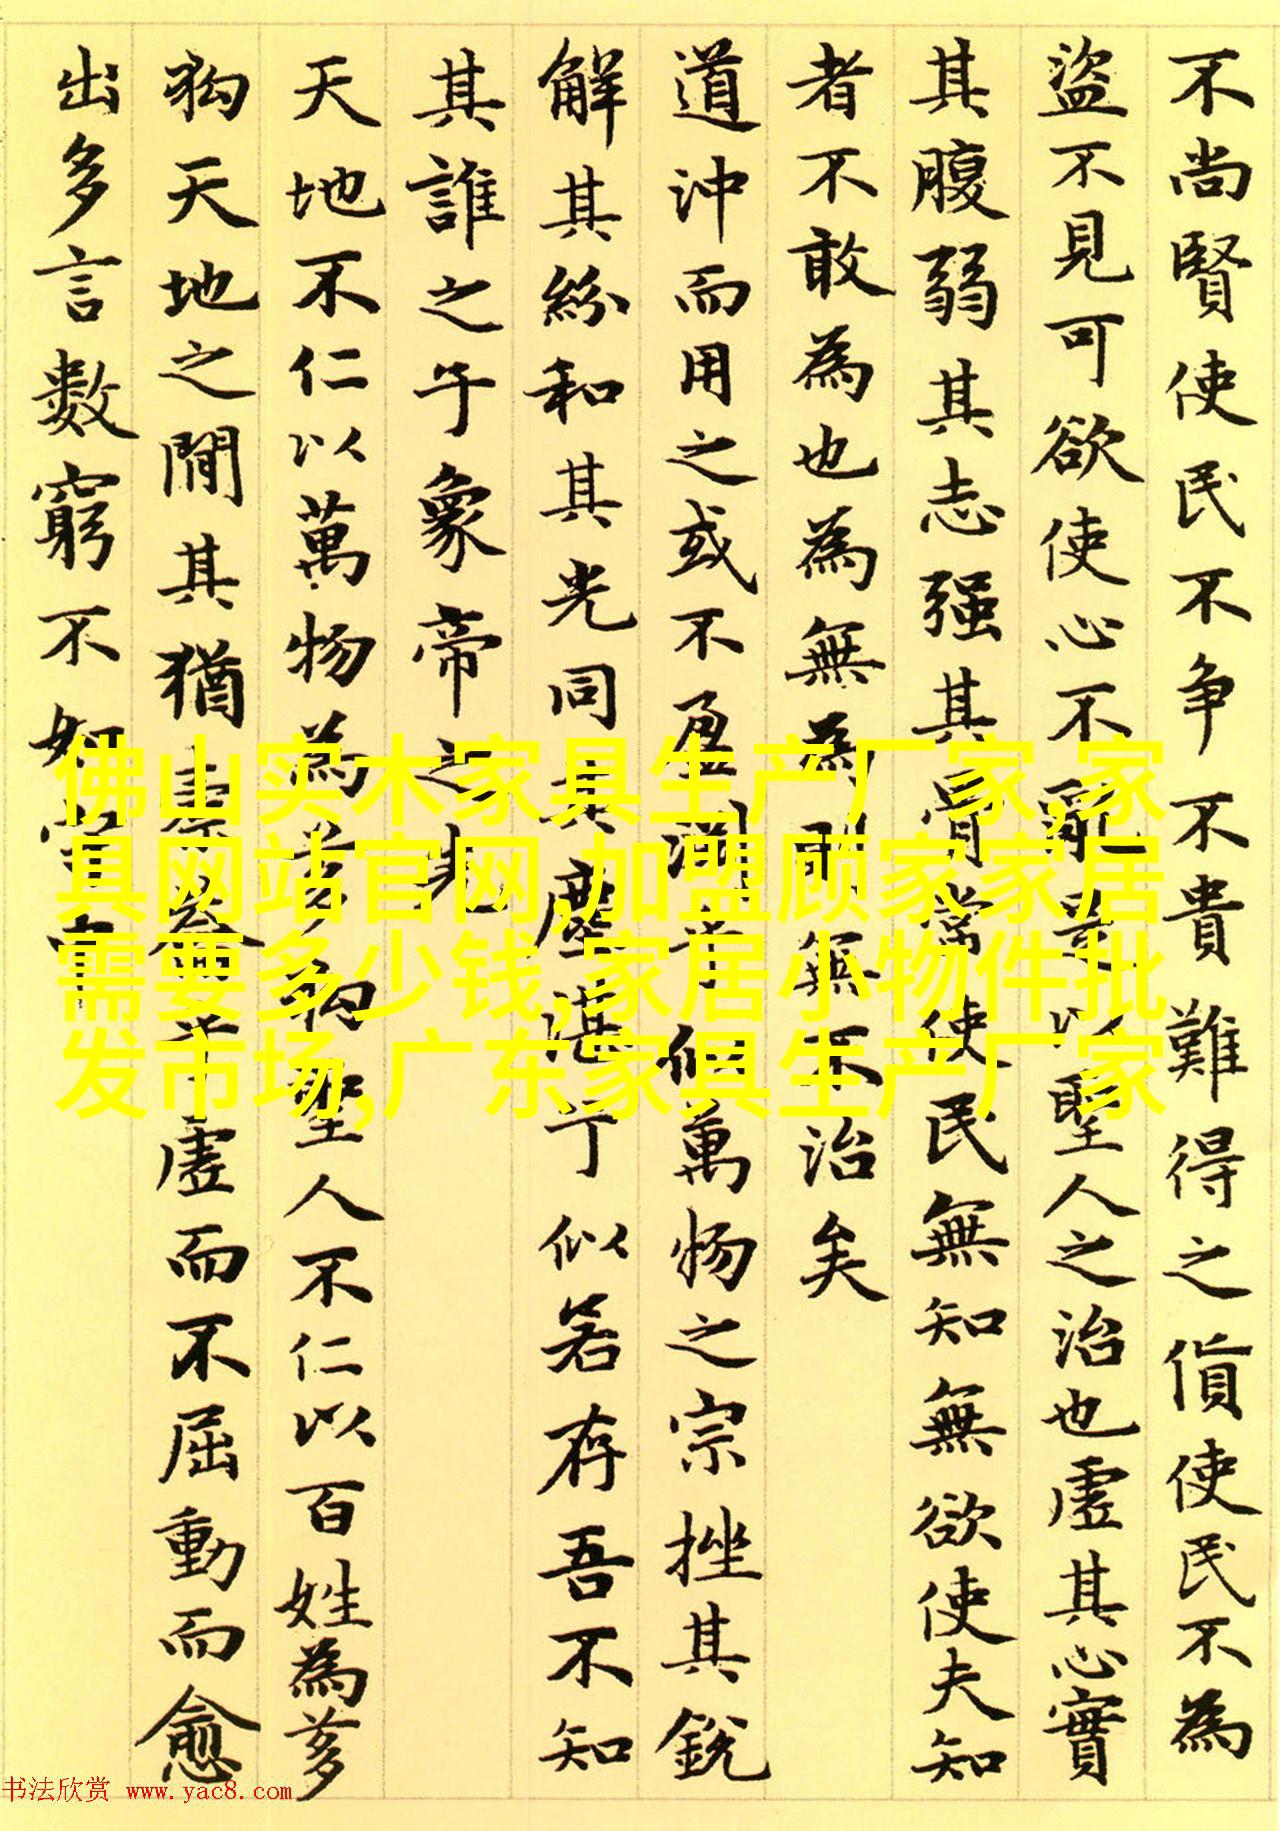 不尚賢使民不争不貴難得之貨使民不為
盜不見可欲使心不亂是以聖人之治也虛其心實
其腹弱其志强其骨常使民無知無欲使夫知
者不敢為也為無為則無不治矣
道沖而用之或不盈淵乎似萬物之宗挫其銳
解其紛和其光同其塵湛乎似若存吾不知
其誰之子象帝之先
天地不仁以萬物為芻狗聖人不仁以百姓為芻
狗天地之間其猶橐籥乎虛而不屈動而愈
出多言數窮不如守中
佛山实木家具生产厂家,家
具网站官网,加盟顾家家居
需要多少钱,家居小物件批
发市场,广东家具生产厂家
书法欣赏 www.yac8.com